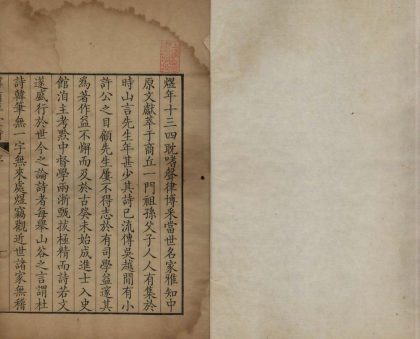 煜年十三四耽嗜聲律博釆當世名家雅知中
原文獻萃于商丘一門祖孫父子人人有集於
時山言先生年甚少其詩已流傳吳越間有小
許公之目顧先生屢不得志於有司學益邃其
爲著作益不懈而及於古癸未始成進士入史
館洎主考黔中督學兩浙甄拔極精而詩若文
遂盛行於世今之論詩者每舉山谷之言謂杜
詩韓筆無一字無來處煜竊觀近世諸家無稽